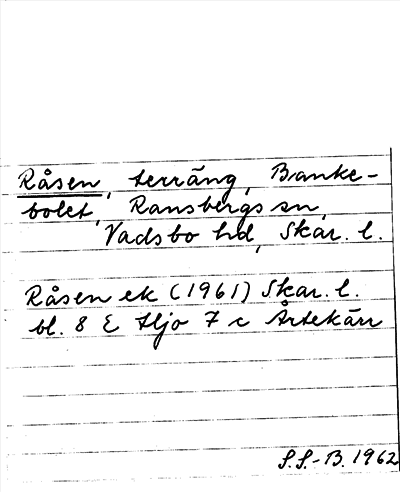 Råsen, terräng, Banke-
bolet, Ransbergs sn,
Vadsbo hd, Skar. l.
Råsen ek (1961) Skar. l.
bl. 8 E Hjo 7 c Årtekärr
S.S.-B. 1962